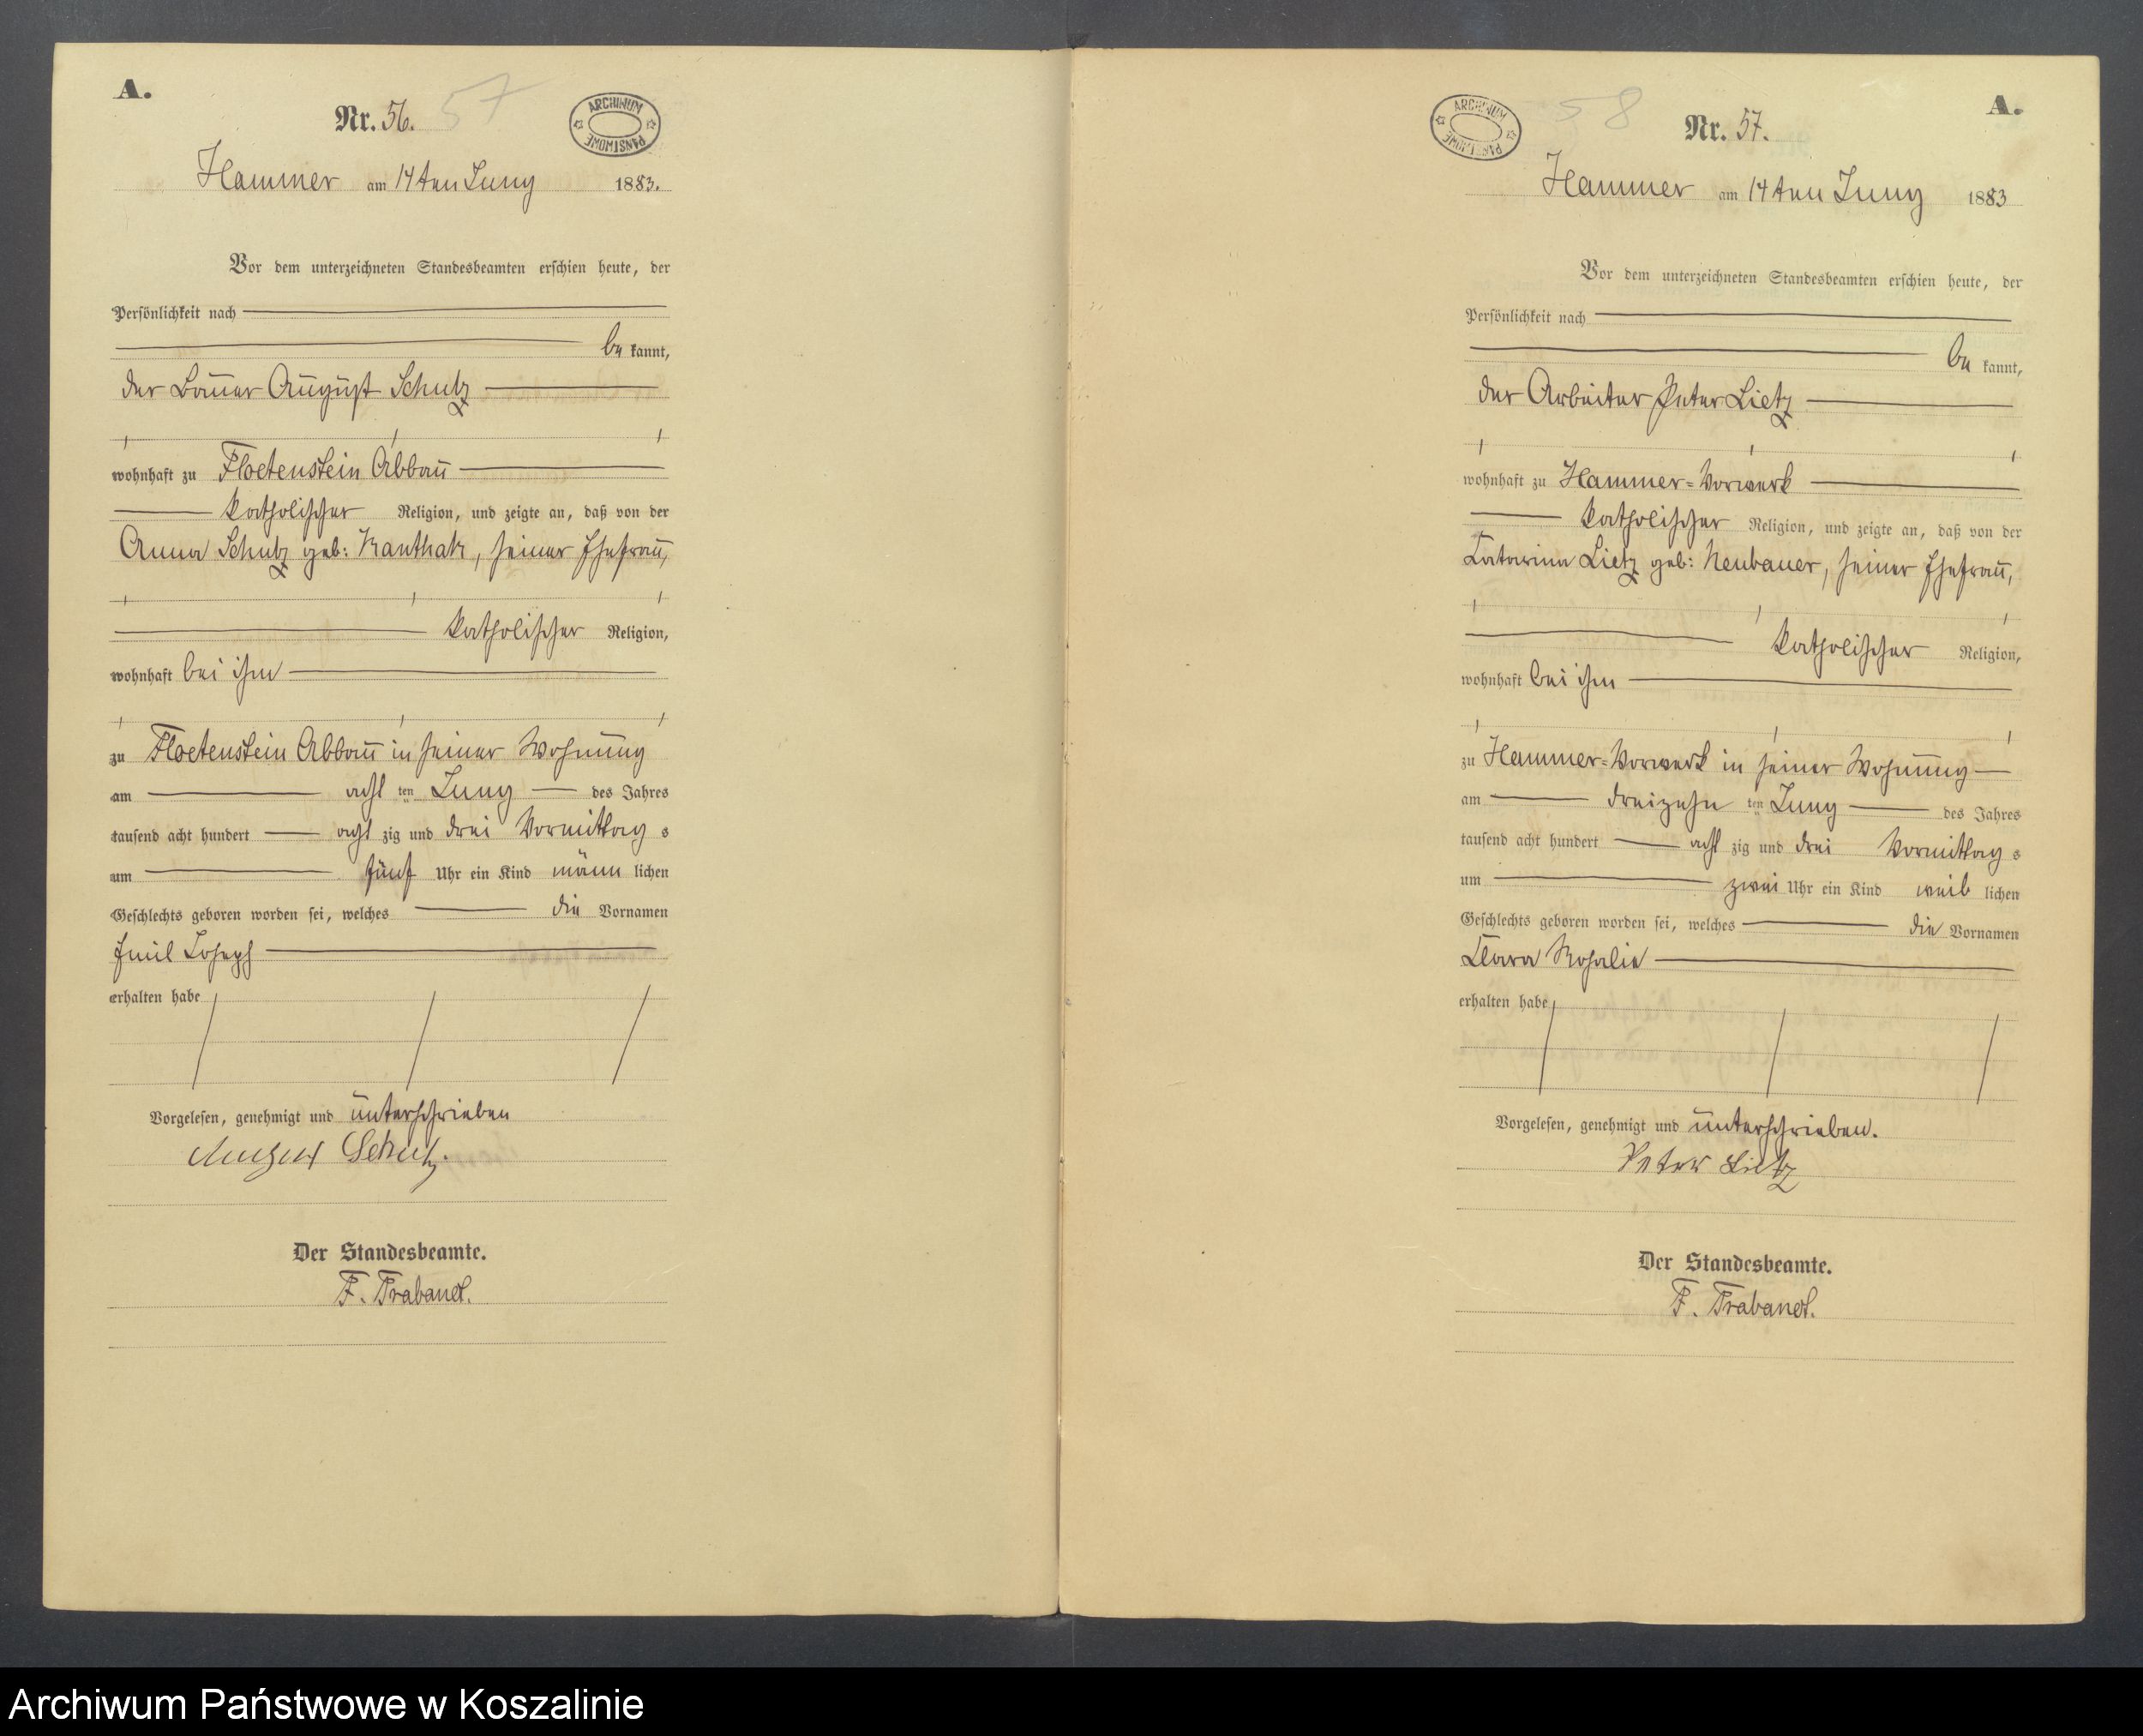 A.
Nr. 56.
57
ARCHIWUM PAŃSTWOWE
Hammer am 14ten Juny 1883.
Vor dem unterzeichneten Standesbeamten erschien heute, der
Persönlichkeit nach
be kannt,
der Bauer August Schulz
wohnhaft zu Floetenstein Abbau
katholischer Religion, und zeigte an, daß von der
Anna Schulz geb: , seiner Ehefrau,
katholischer Religion,
wohnhaft bei ihm
zu Floetenstein Abbau in seiner Wohnung
am acht ten Juny des Jahres
tausend acht hundert acht zig und drei Vormittag s
um fünf Uhr ein Kind männ lichen
Geschlechts geboren worden sei, welches die Vornamen
Emil Joseph
erhalten habe
Vorgelesen, genehmigt und unterschrieben
August Schulz.
Der Standesbeamte.
F. Trabandt.
A.
Nr. 57.
58
ARCHIWUM PAŃSTWOWE
Hammer am 14ten Juny 1883
Vor dem unterzeichneten Standesbeamten erschien heute, der
Persönlichkeit nach
be kannt,
der Arbeiter Peter Lietz
wohnhaft zu Hammer=Vorwerk
katholischer Religion, und zeigte an, daß von der
Catarina Lietz geb: Neubauer, seiner Ehefrau,
katholischer Religion,
wohnhaft bei ihm
zu Hammer=Vorwerk in seiner Wohnung
am dreizehn ten Juny des Jahres
tausend acht hundert acht zig und drei Vormittag s
um zwei Uhr ein Kind weib lichen
Geschlechts geboren worden sei, welches die Vornamen
Clara Rosalie
erhalten habe
Vorgelesen, genehmigt und unterschrieben.
Peter Lietz
Der Standesbeamte.
F. Trabandt.
Archiwum Państwowe w Koszalinie